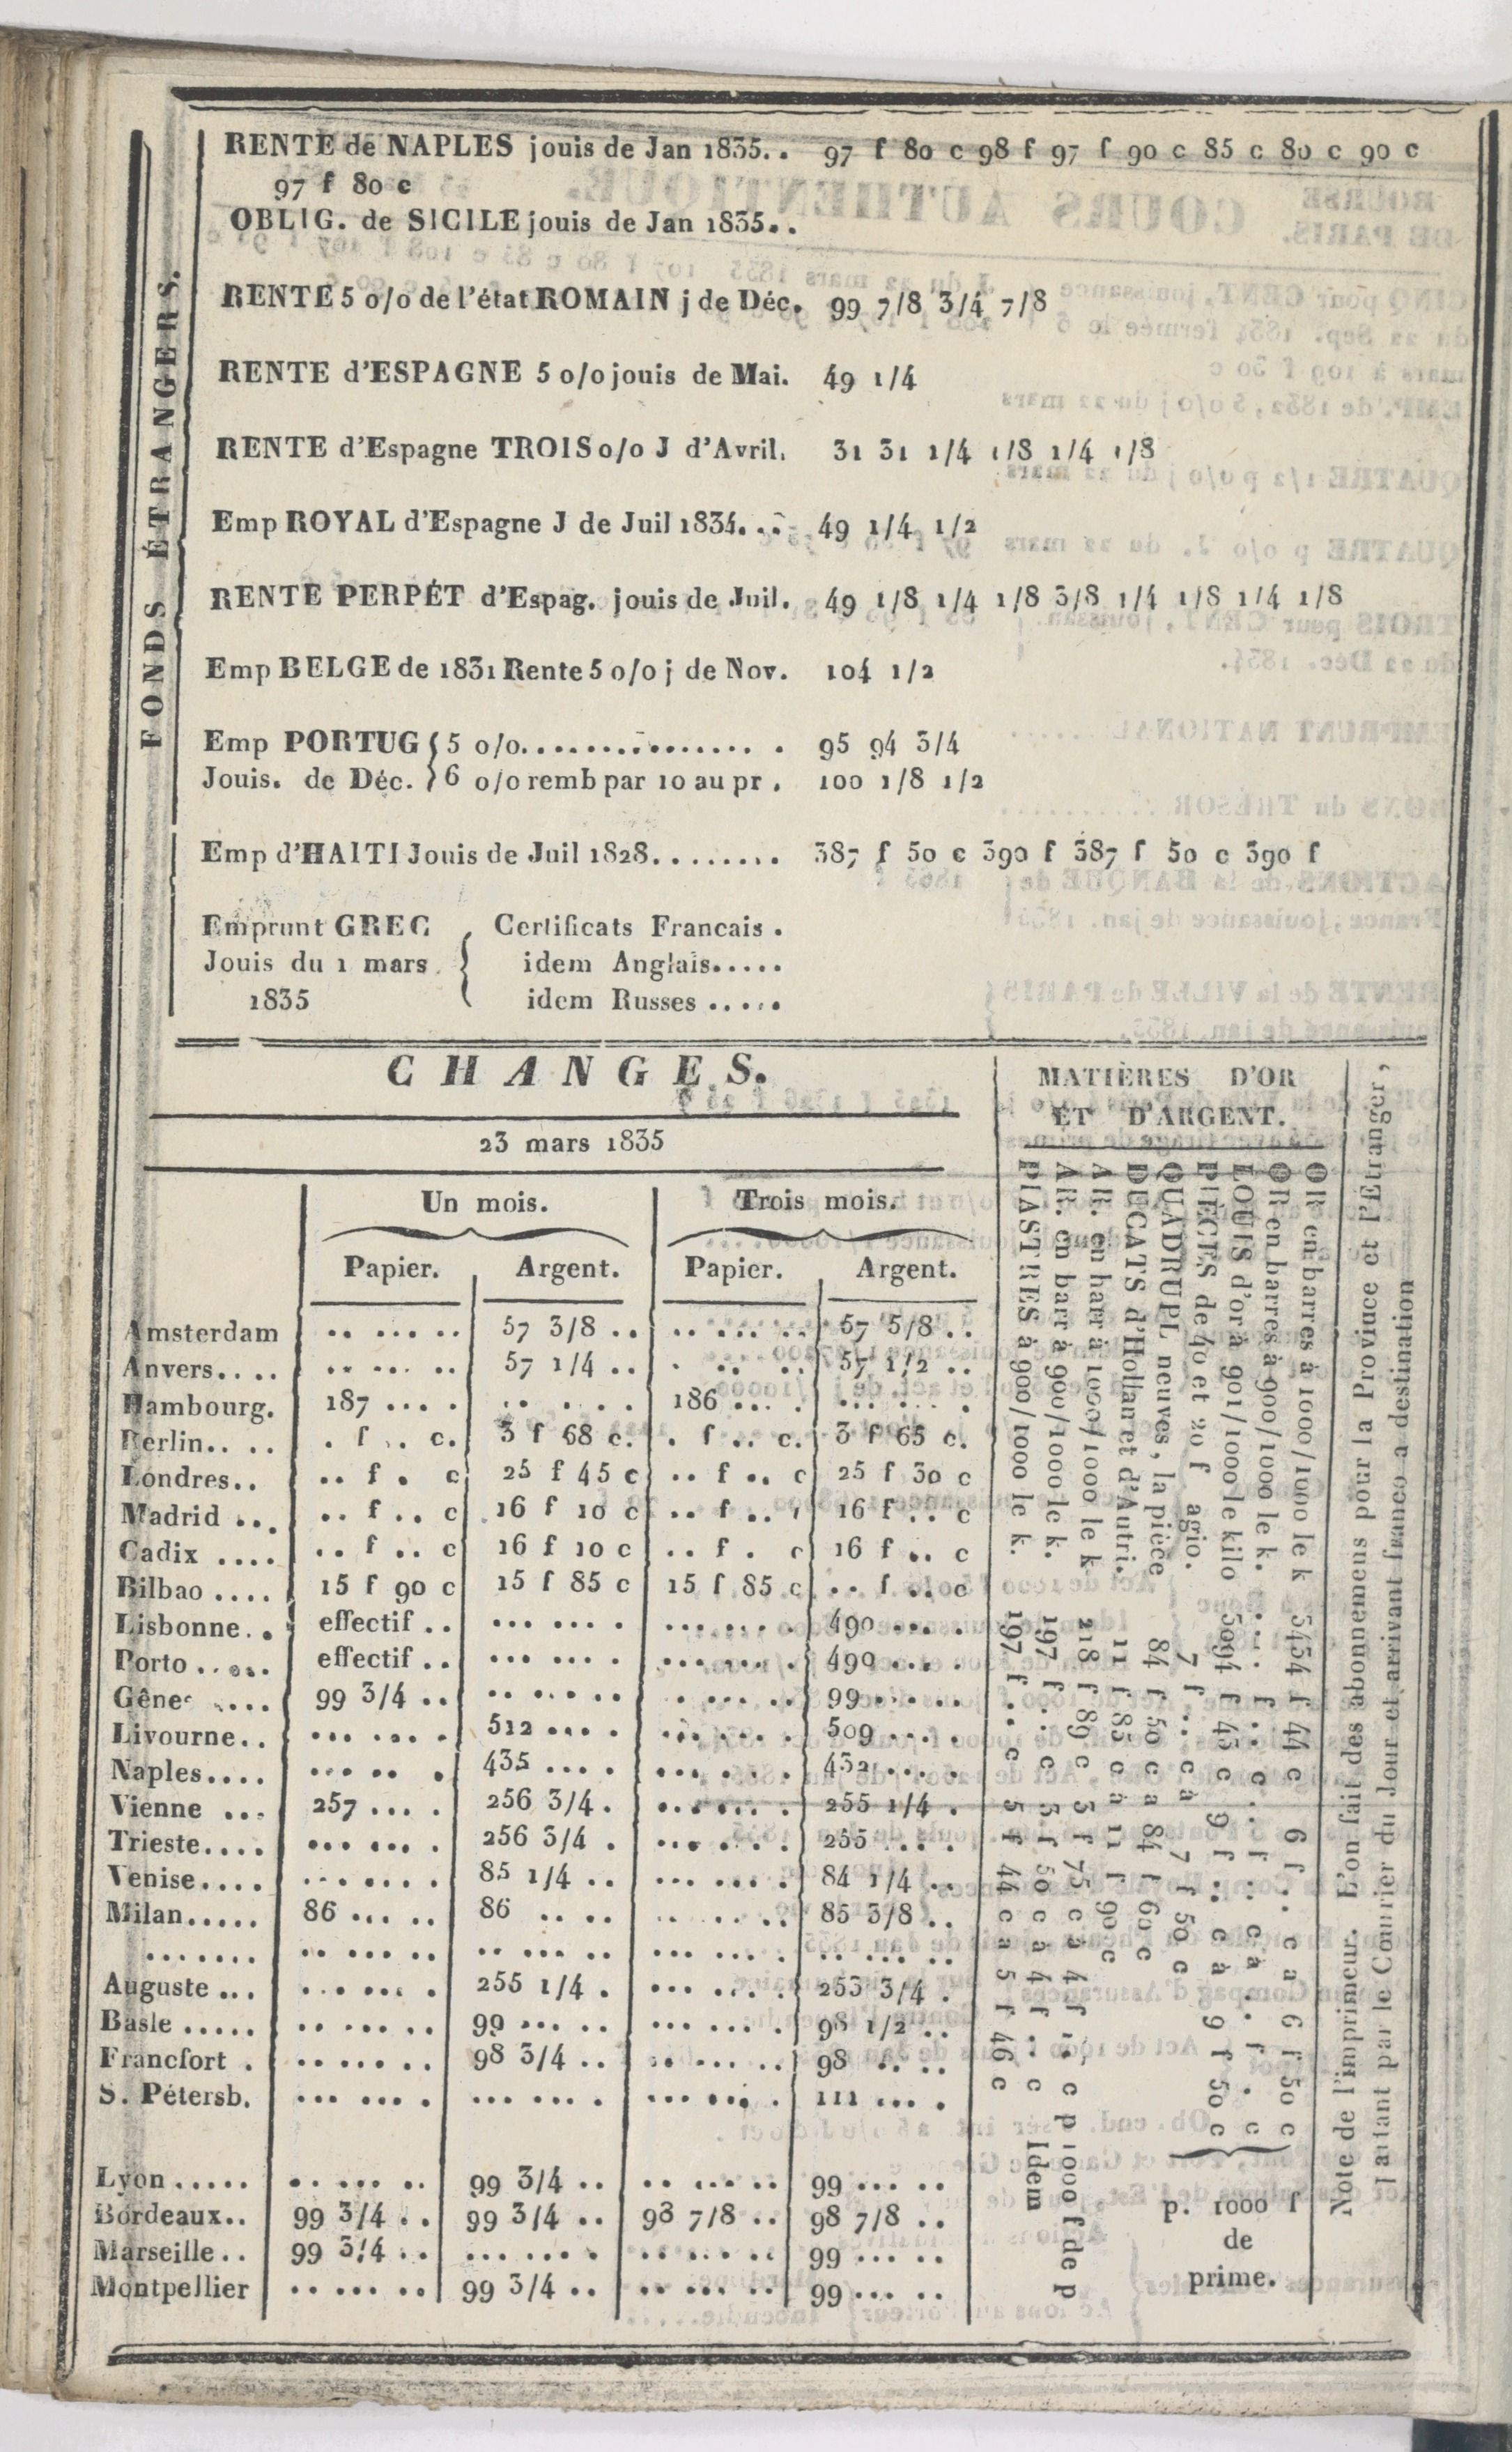 FONDS ÉTRANGERS.
RENTE de NAPLES jouis de Jan 1835.. 97 f 80 c 98 f 97 f 90 c 85 c 80 c 90 c
97 f 80 c
OBLIG. de SICILE jouis de Jan 1835..
RENTE 5 o/o de l'état ROMAIN j de Déc. 99 7/8 3/4 7/8
RENTE d'ESPAGNE 5 o/o jouis de Mai. 49 1/4
RENTE d'Espagne TROIS o/o J d'Avril. 31 31 1/4 1/8 1/4 1/8
Emp ROYAL d'Espagne J de Juil 1834... 49 1/4 1/2
RENTE PERPÉT d'Espag. jouis de Juil. 49 1/8 1/4 1/8 3/8 1/4 1/8 1/4 1/8
Emp BELGE de 1831 Rente 5 o/o j de Nov. 104 1/2
Emp PORTUG { 5 o/o................ 95 94 3/4
Jouis. de Déc. } 6 o/o remb par 10 au pr . 100 1/8 1/2
Emp d'HAITI Jouis de Juil 1828........ 387 f 50 c 390 f 387 f 50 c 390 f
Emprunt GREC { Certificats Francais .
Jouis du 1 mars idem Anglais.....
1835 idem Russes .....
CHANGES.
23 mars 1835
Un mois. Trois mois.
Papier. Argent. Papier. Argent.
Amsterdam .. ... .. 57 3/8 .. .. ... .. 57 5/8 ..
Anvers.... .. ... .. 57 1/4 .. . .. .. 57 1/2 ..
Hambourg. 187 .... .. . . . 186 ... . ... ... .
Berlin.. .. . f .. c. 3 f 68 c. . f .. c. 3 f 65 c.
Londres.. .. f . c 25 f 45 c .. f .. c 25 f 30 c
Madrid ... .. f .. c 16 f 10 c .. f .. 16 f .. c
Cadix .... .. f .. c 16 f 10 c .. f . c 16 f .. c
Bilbao .... 15 f 90 c 15 f 85 c 15 f 85 c .. f .. c
Lisbonne. . effectif .. ... ... . ... ... . 490 ... .
Porto ...... effectif .. ... ... . ... ... . 490 ... .
Gênes .... 99 3/4 .. .. ... .. . ... .. 99 ... ..
Livourne.. ... ... . 512 ... . ... ... . 509 ... .
Naples.... ... .. . 435 ... . ... ... . 432 ... .
Vienne ... 257 ... . 256 3/4 . ... ... . 255 1/4 .
Trieste.... ... ... . 256 3/4 . ... ... . 255 ... .
Venise.... ... ... . 85 1/4 .. ... ... . 84 1/4 ..
Milan..... 86 ... .. 86 .. .. .. ... .. 85 3/8 ..
....... .. ... .. .. ... .. ... ... . .. ... ..
Auguste ... .. ... . 255 1/4 . ... ... . 253 3/4 .
Basle ..... .. ... .. 99 ... .. ... ... . 98 1/2 ..
Francfort . .. ... .. 98 3/4 .. .. ... .. 98 .. ..
S. Pétersb. ... ... . ... ... . ... ... . 111 ... .
Lyon ..... .. ... .. 99 3/4 .. .. ... .. 99 ... ..
Bordeaux.. 99 3/4 .. 99 3/4 .. 98 7/8 .. 98 7/8 ..
Marseille.. 99 3/4 .. ... ... . .. ... .. 99 ... ..
Montpellier .. ... .. 99 3/4 .. .. ... .. 99 ... ..
MATIÈRES D'OR
ET D'ARGENT.
OR en barres à 1000/1000 le k 3434 f 44 c 6 f .. c a 6 f 50 c
OR en barres à 900/1000 le k. .... f .. c .. f .. c à .. f . c
LOUIS d'or à 901/1000 le kilo 3094 f 43 c 9 f .. c à 9 f 50 c
PIÈCES de 40 et 20 f agio. 7 f .. c à 7 f 50 c
QUADRUPL neuves, la pièce 84 f 50 c a 84 f 60 c
DUCATS d'Holl et d'Autri. 11 f 85 c à 11 f 90 c
AR. en barr à 1000/1000 le k 218 f 89 c 3 f 75 c à 4 f .. c p 1000 f de p
AR. en barr à 900/1000 le k. 197 f .. c 3 f 50 c à 4 f .. c Idem
PIASTRES à 900/1000 le k. 197 f .. c 5 f 44 c a 5 f 46 c
p. 1000 f
de
prime.
Note de l'imprimeur. L'on fait des abonnemens pour la Province et l'Étranger,
partant par le Courrier du Jour et arrivant franco a destination